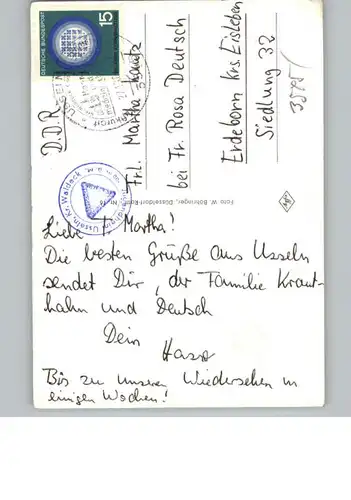 DEUTSCHE BUNDESPOST
15
USSELN
D.D.R.
Frl. Martha
bei Fr. Rosa Deutsch
Erdeborn Krs. Eisleben
Siedlung 32
Foto W. Böhringer, Düsseldorf
Usseln, Kr. Waldeck
Liebe Martha!
Die besten Grüße aus Usseln
sendet Dir, der Familie Kraut-
hahn und Deutsch
Dein
Bis zu unseren Wiedersehen in
einigen Wochen!